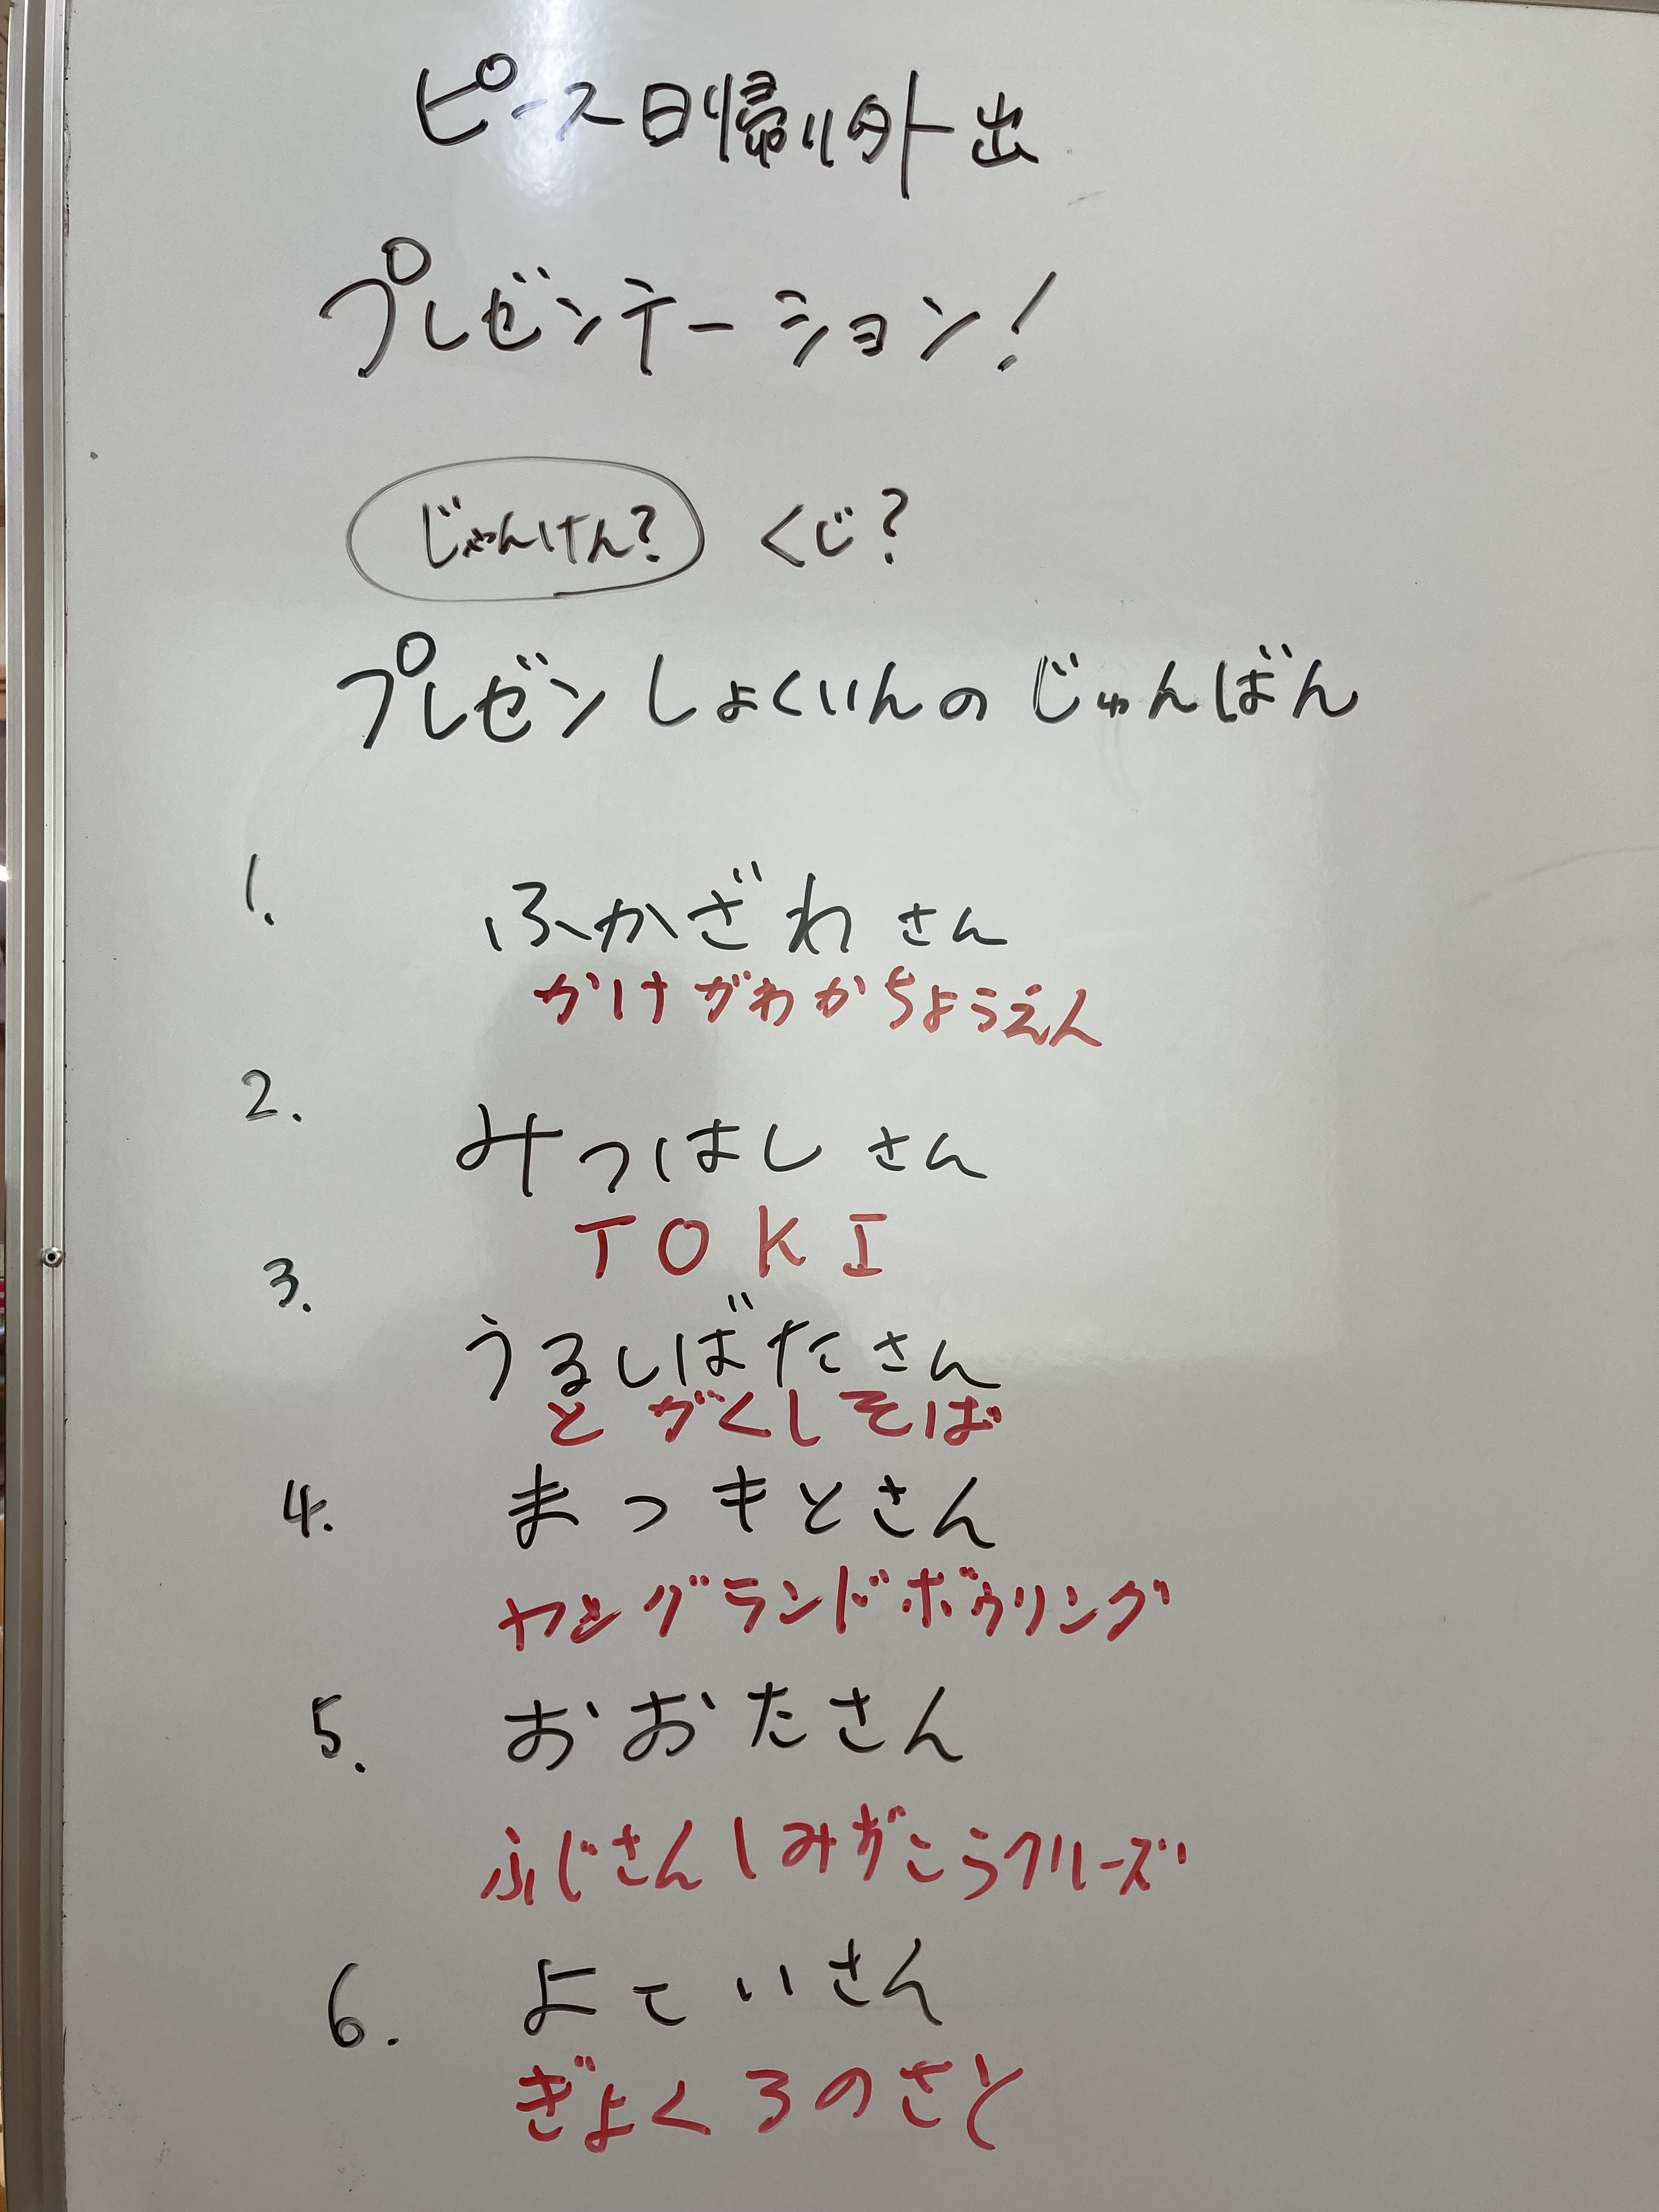 ピース日帰り外出
プレゼンテーション!
じゃんけん? くじ?
プレゼンしょくいんのじゅんばん
1. ふかざわさん
かけがわかちょうえん
2. みつはしさん
TOKI
3. うるしばたさん
とがくしそば
4. まつもとさん
ヤングランドボウリング
5. おおたさん
ふじさんしみずこうクルーズ
6. よていさん
ぎょくろのさと